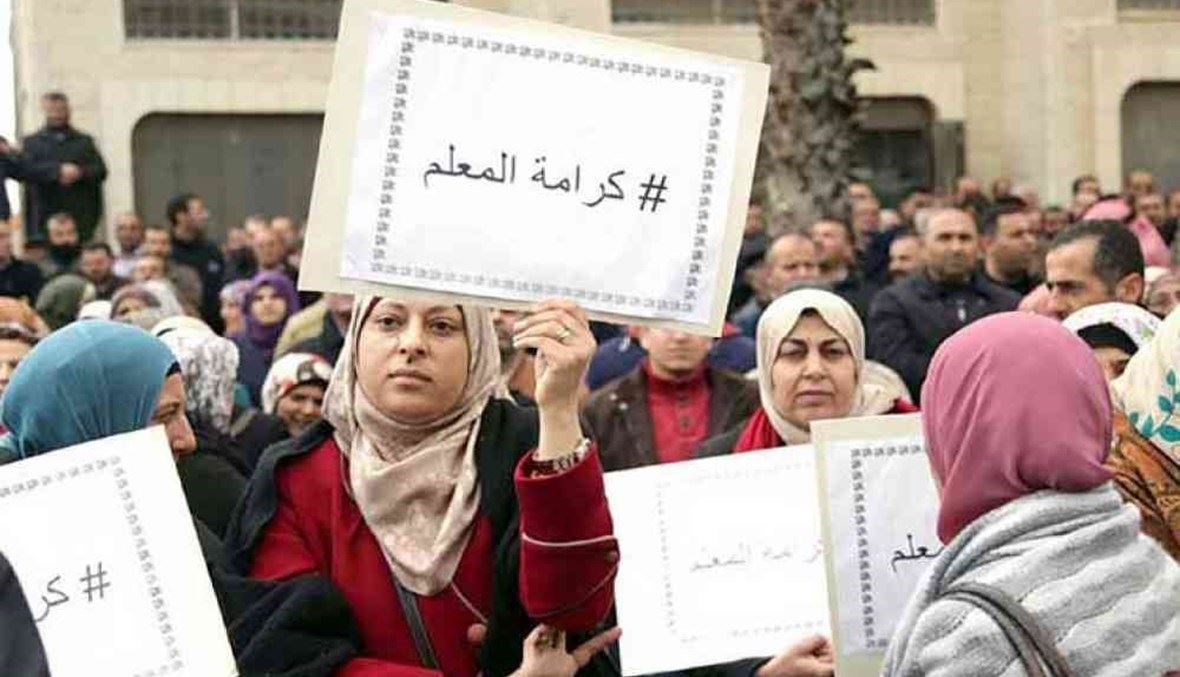 # كرامة المعلم
# كر
كرامة المعلم
معلم